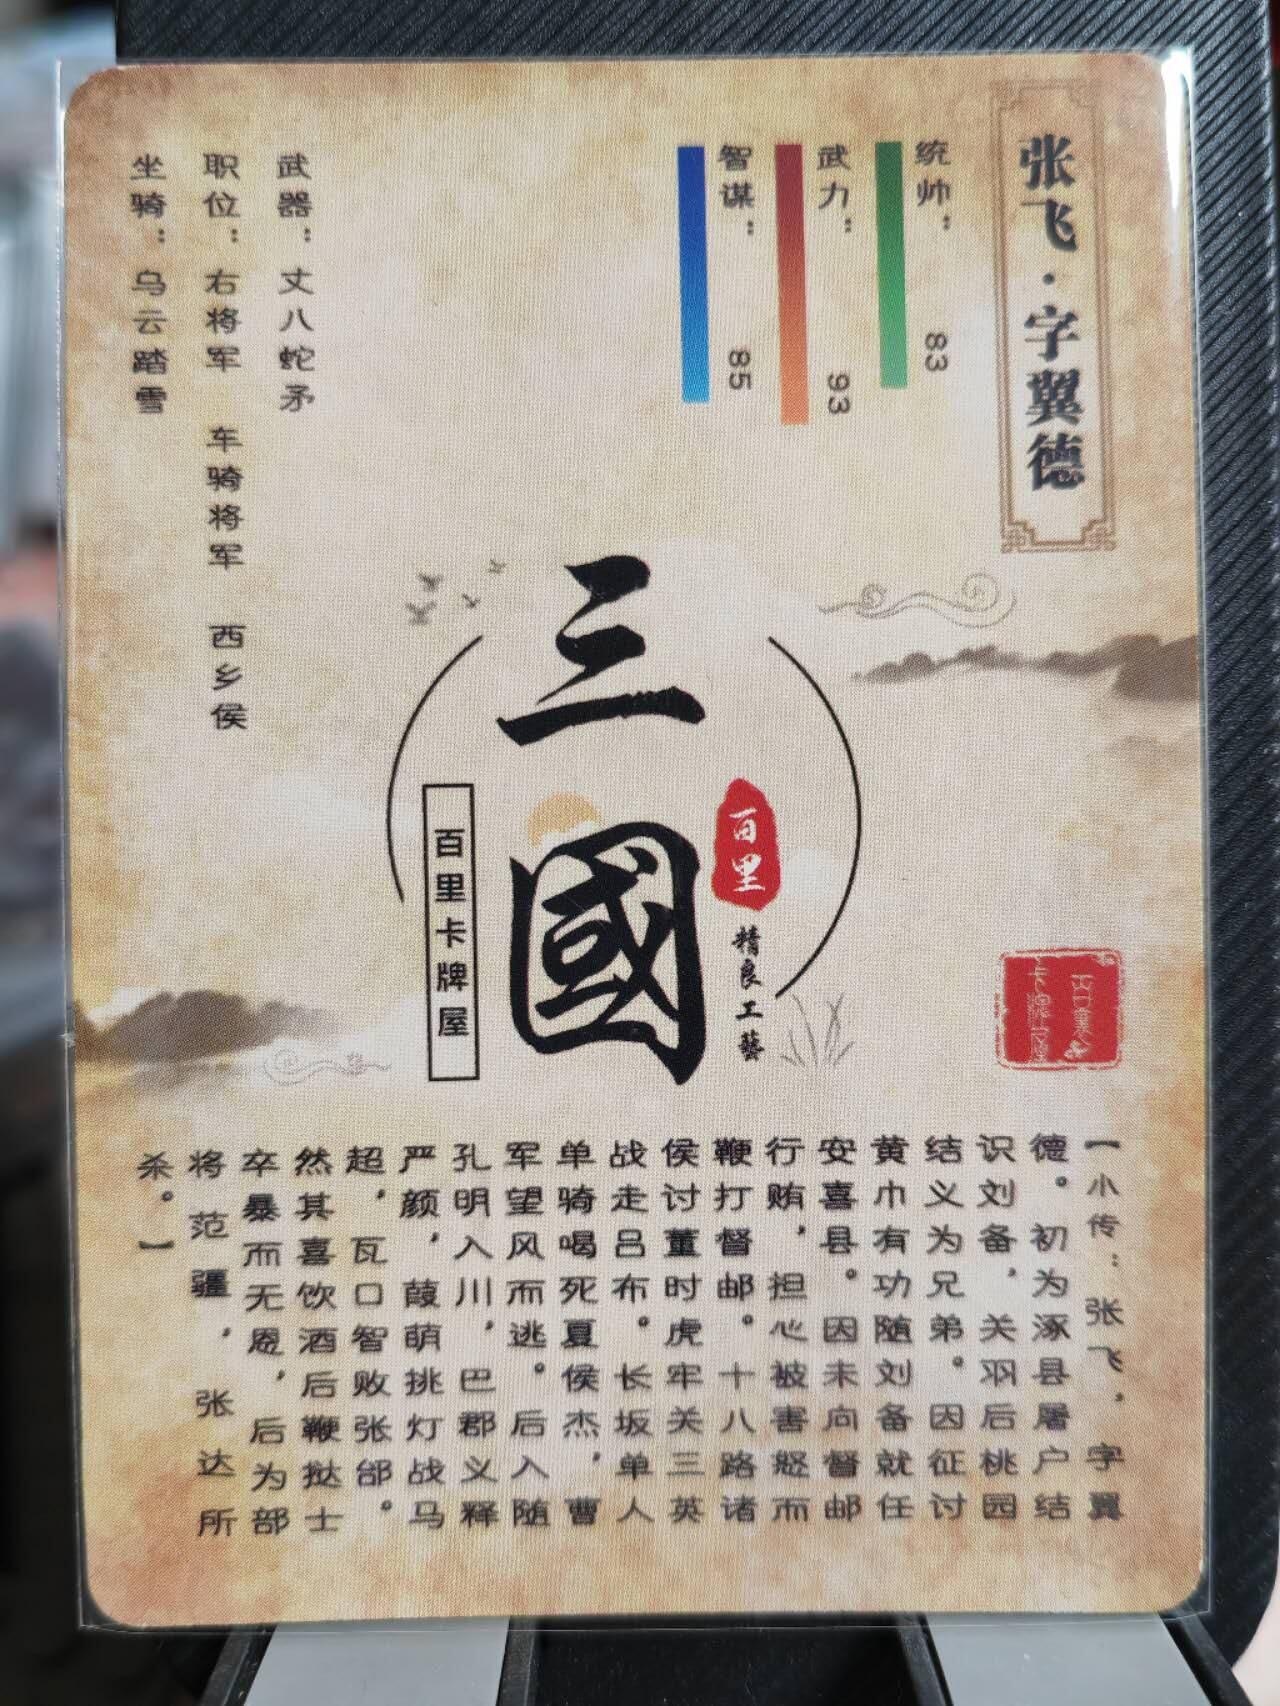 张飞·字翼德
统帅：83
武力：93
智谋：85
武器：丈八蛇矛
职位：右将军 车骑将军 西乡侯
坐骑：乌云踏雪
三國
百里
精良工藝
百里卡牌屋
【小传：张飞，字翼
德。初为涿县屠户结
识刘备，关羽后桃园
结义为兄弟。因征讨
黄巾有功随刘备就任
安喜县。因未向督邮
行贿，担心被害怒而
鞭打督邮。十八路诸
侯讨董时虎牢关三英
战走吕布。长坂单人
单骑喝死夏侯杰，曹
军望风而逃。后入随
孔明入川，巴郡义释
严颜，葭萌挑灯战马
超，瓦口智败张郃。
然其喜饮酒后鞭挞士
卒暴而无恩，后为部
将范疆，张达所
杀。】